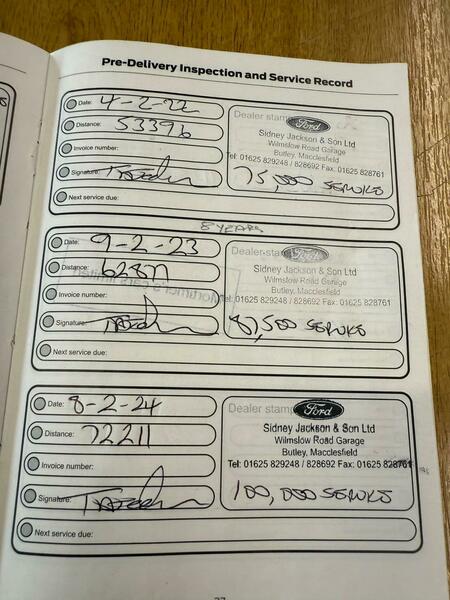 Pre-Delivery Inspection and Service Record
Date: 4-2-22
Distance: 53396
Invoice number:
Signature:
Next service due:
Dealer stamp
Ford
Sidney Jackson & Son Ltd
Wilmslow Road Garage
Butley, Macclesfield
Tel: 01625 829248 / 828692 Fax: 01625 828761
75,000 SERVICE
8 YEARS
Date: 9-2-23
Distance:
Invoice number:
Signature:
Next service due:
Dealer sta
Ford
Sidney Jackson & Son Ltd
Wilmslow Road Garage
Butley, Macclesfield
Tel: 01625 829248 / 828692 Fax: 01625 828761
87,500 SERVICE
Mortimer's cars limited
Date: 8-2-24
Distance: 72211
Invoice number:
Signature:
Next service due:
Dealer stamp
Ford
Sidney Jackson & Son Ltd
Wilmslow Road Garage
Butley, Macclesfield
Tel: 01625 829248 / 828692 Fax: 01625 828761
100,000 SERVICE